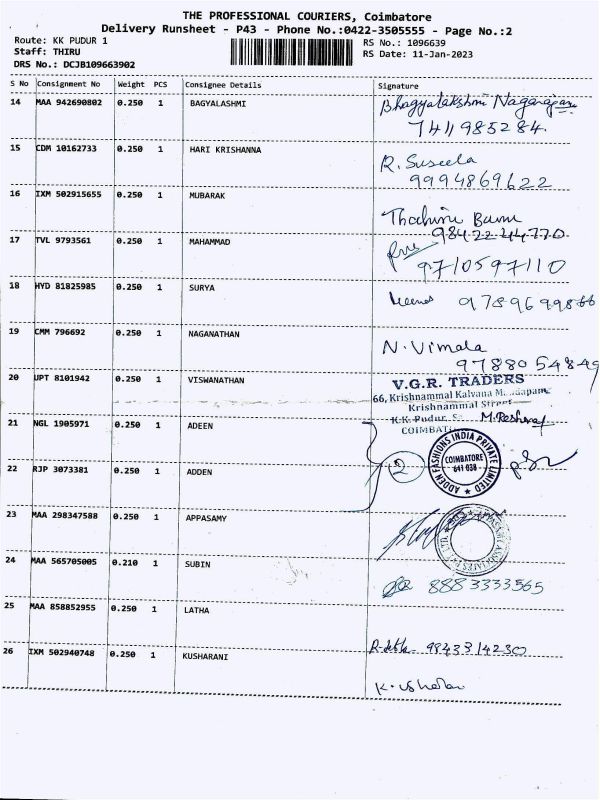 THE PROFESSIONAL COURIERS, Coimbatore
Delivery Runsheet - P43 - Phone No.:0422-3505555 - Page No.:2
Route: KK PUDUR 1
RS No.: 1096639
Staff: THIRU
RS Date: 11-Jan-2023
DRS No.: DCJB109663902
S No Consignment No Weight PCS Consignee Details Signature
14 MAA 942690802 0.250 1 BAGYALASHMI Bhagyalakshmi Nagarajan
7411985284.
15 CDM 10162733 0.250 1 HARI KRISHANNA R. Suseela
9994869622
16 IXM 502915655 0.250 1 MUBARAK
9842244770
17 TVL 9793561 0.250 1 MAHAMMAD
9710597110
18 HYD 81825985 0.250 1 SURYA 9789699866
19 CMM 796692 0.250 1 NAGANATHAN N. Vimala
9788054849
20 UPT 8101942 0.250 1 VISWANATHAN V.G.R. TRADERS
66, Krishnammal Kalyana Mandapam
Krishnammal Street
K.K. Pudur,
COIMBAT
21 NGL 1905971 0.250 1 ADEEN
22 RJP 3073381 0.250 1 ADDEN 2 ADDEN FASHIONS INDIA PRIVATE LIMITED
COIMBATORE
641 038
23 MAA 298347588 0.250 1 APPASAMY
24 MAA 565705005 0.210 1 SUBIN 8883333565
25 MAA 858852955 0.250 1 LATHA 9843314230
26 IXM 502940748 0.250 1 KUSHARANI